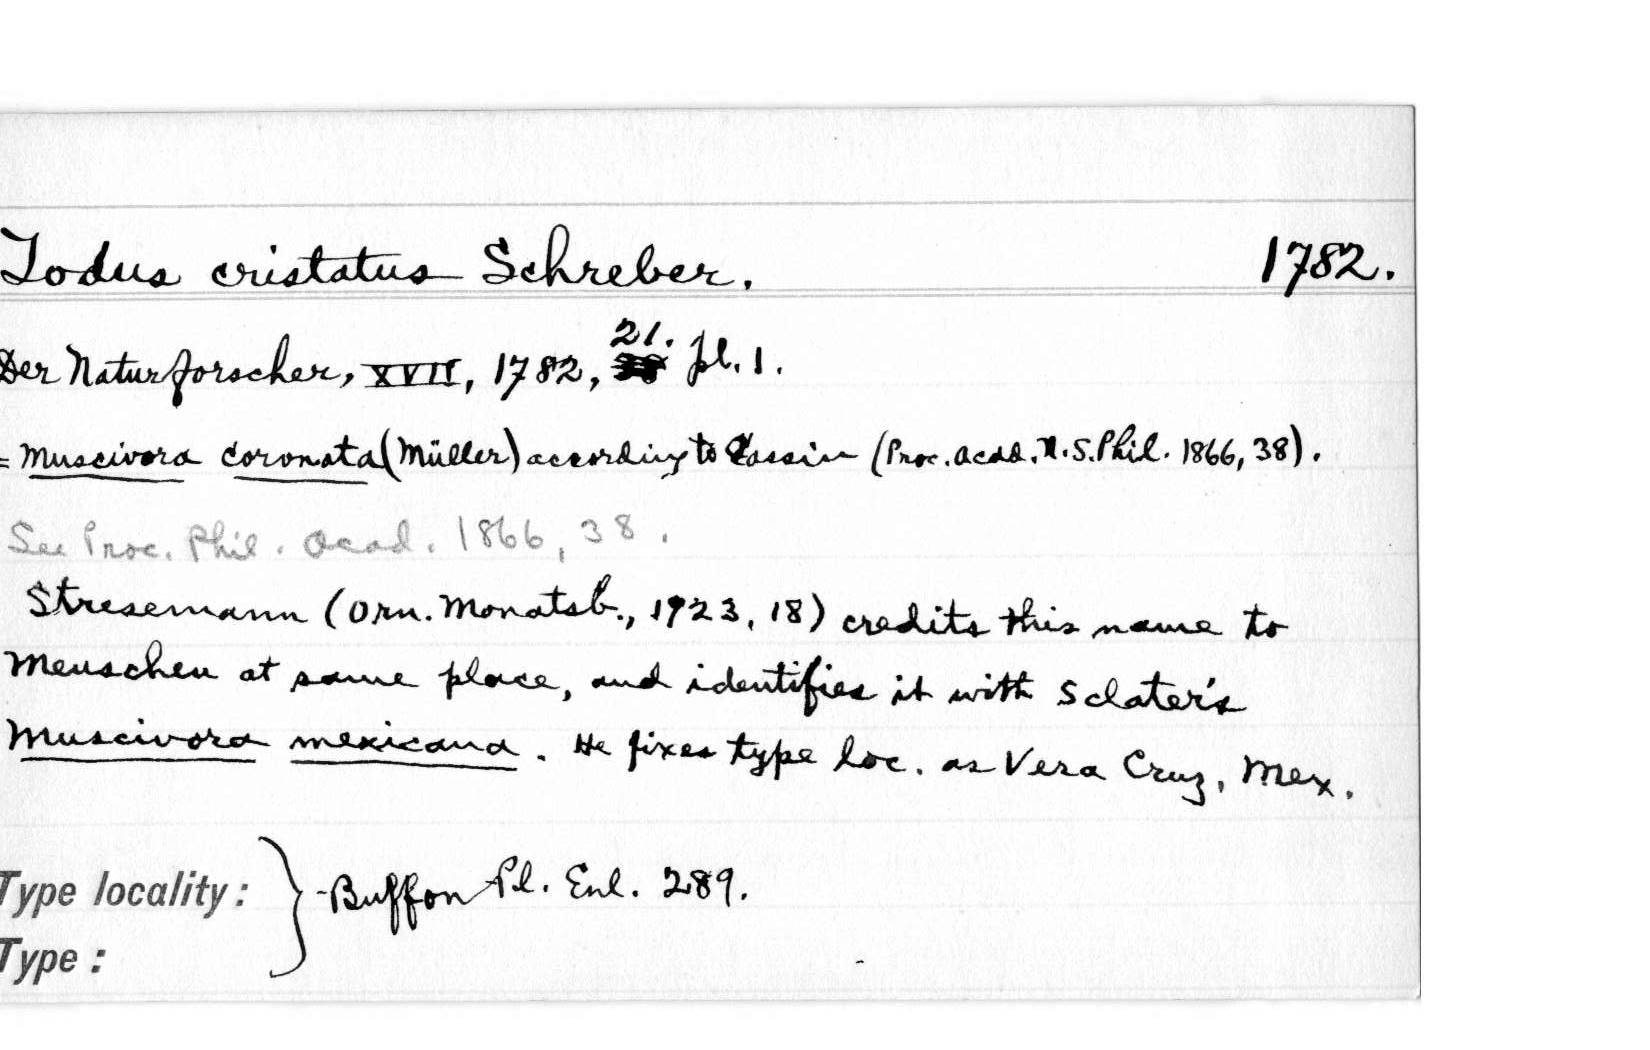 Todus cristatus Schreber. 1782.
Der Naturforscher, XVII, 1782, 21. pl. 1.
= Muscivora coronata (Müller) according to Cassin (Proc. Acad. N. S. Phil. 1866, 38).
See Proc. Phil. Acad. 1866, 38.
Stresemann (Orn. Monatsb., 1923, 18) credits this name to
Meuschen at same place, and identifies it with Sclater's
Muscivora mexicana. He fixes type loc. as Vera Cruz, Mex.
Type locality: } Buffon Pl. Enl. 289.
Type: